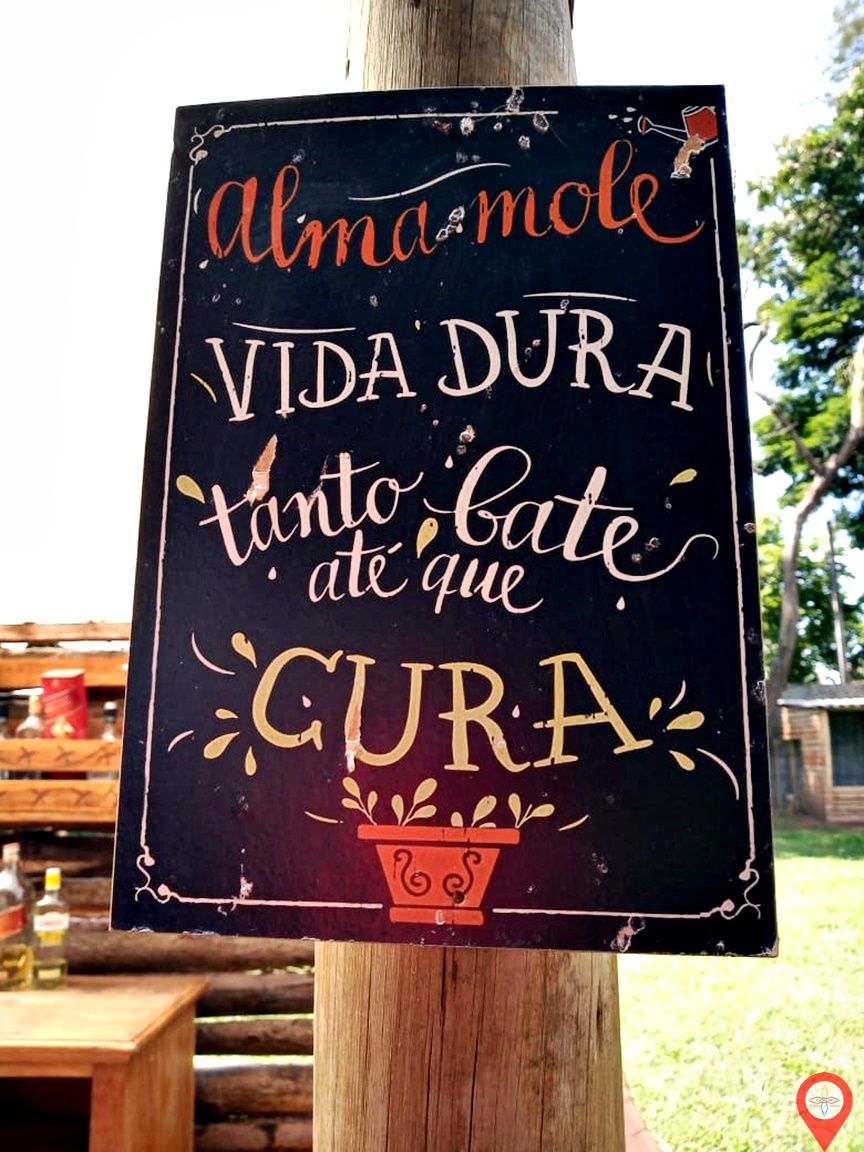 Alma mole
VIDA DURA
tanto bate
até que
CURA